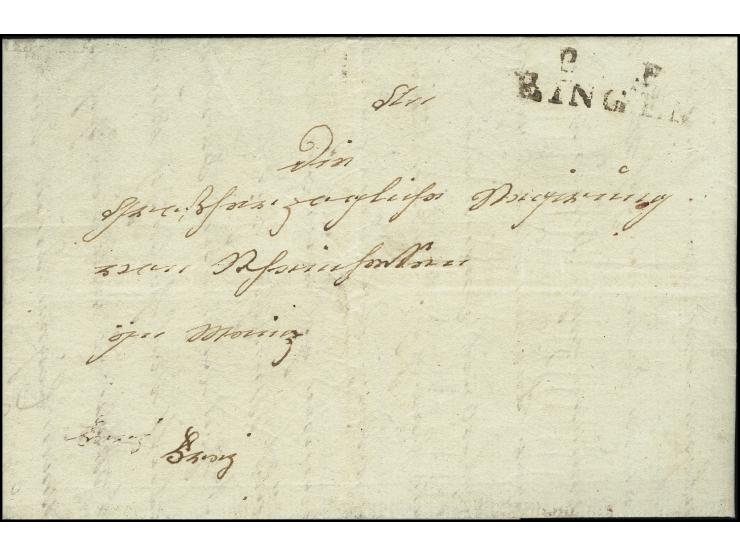 BINGEN
An
Die
Großherzogliche Regierung
von Rheinhessen
in Mainz